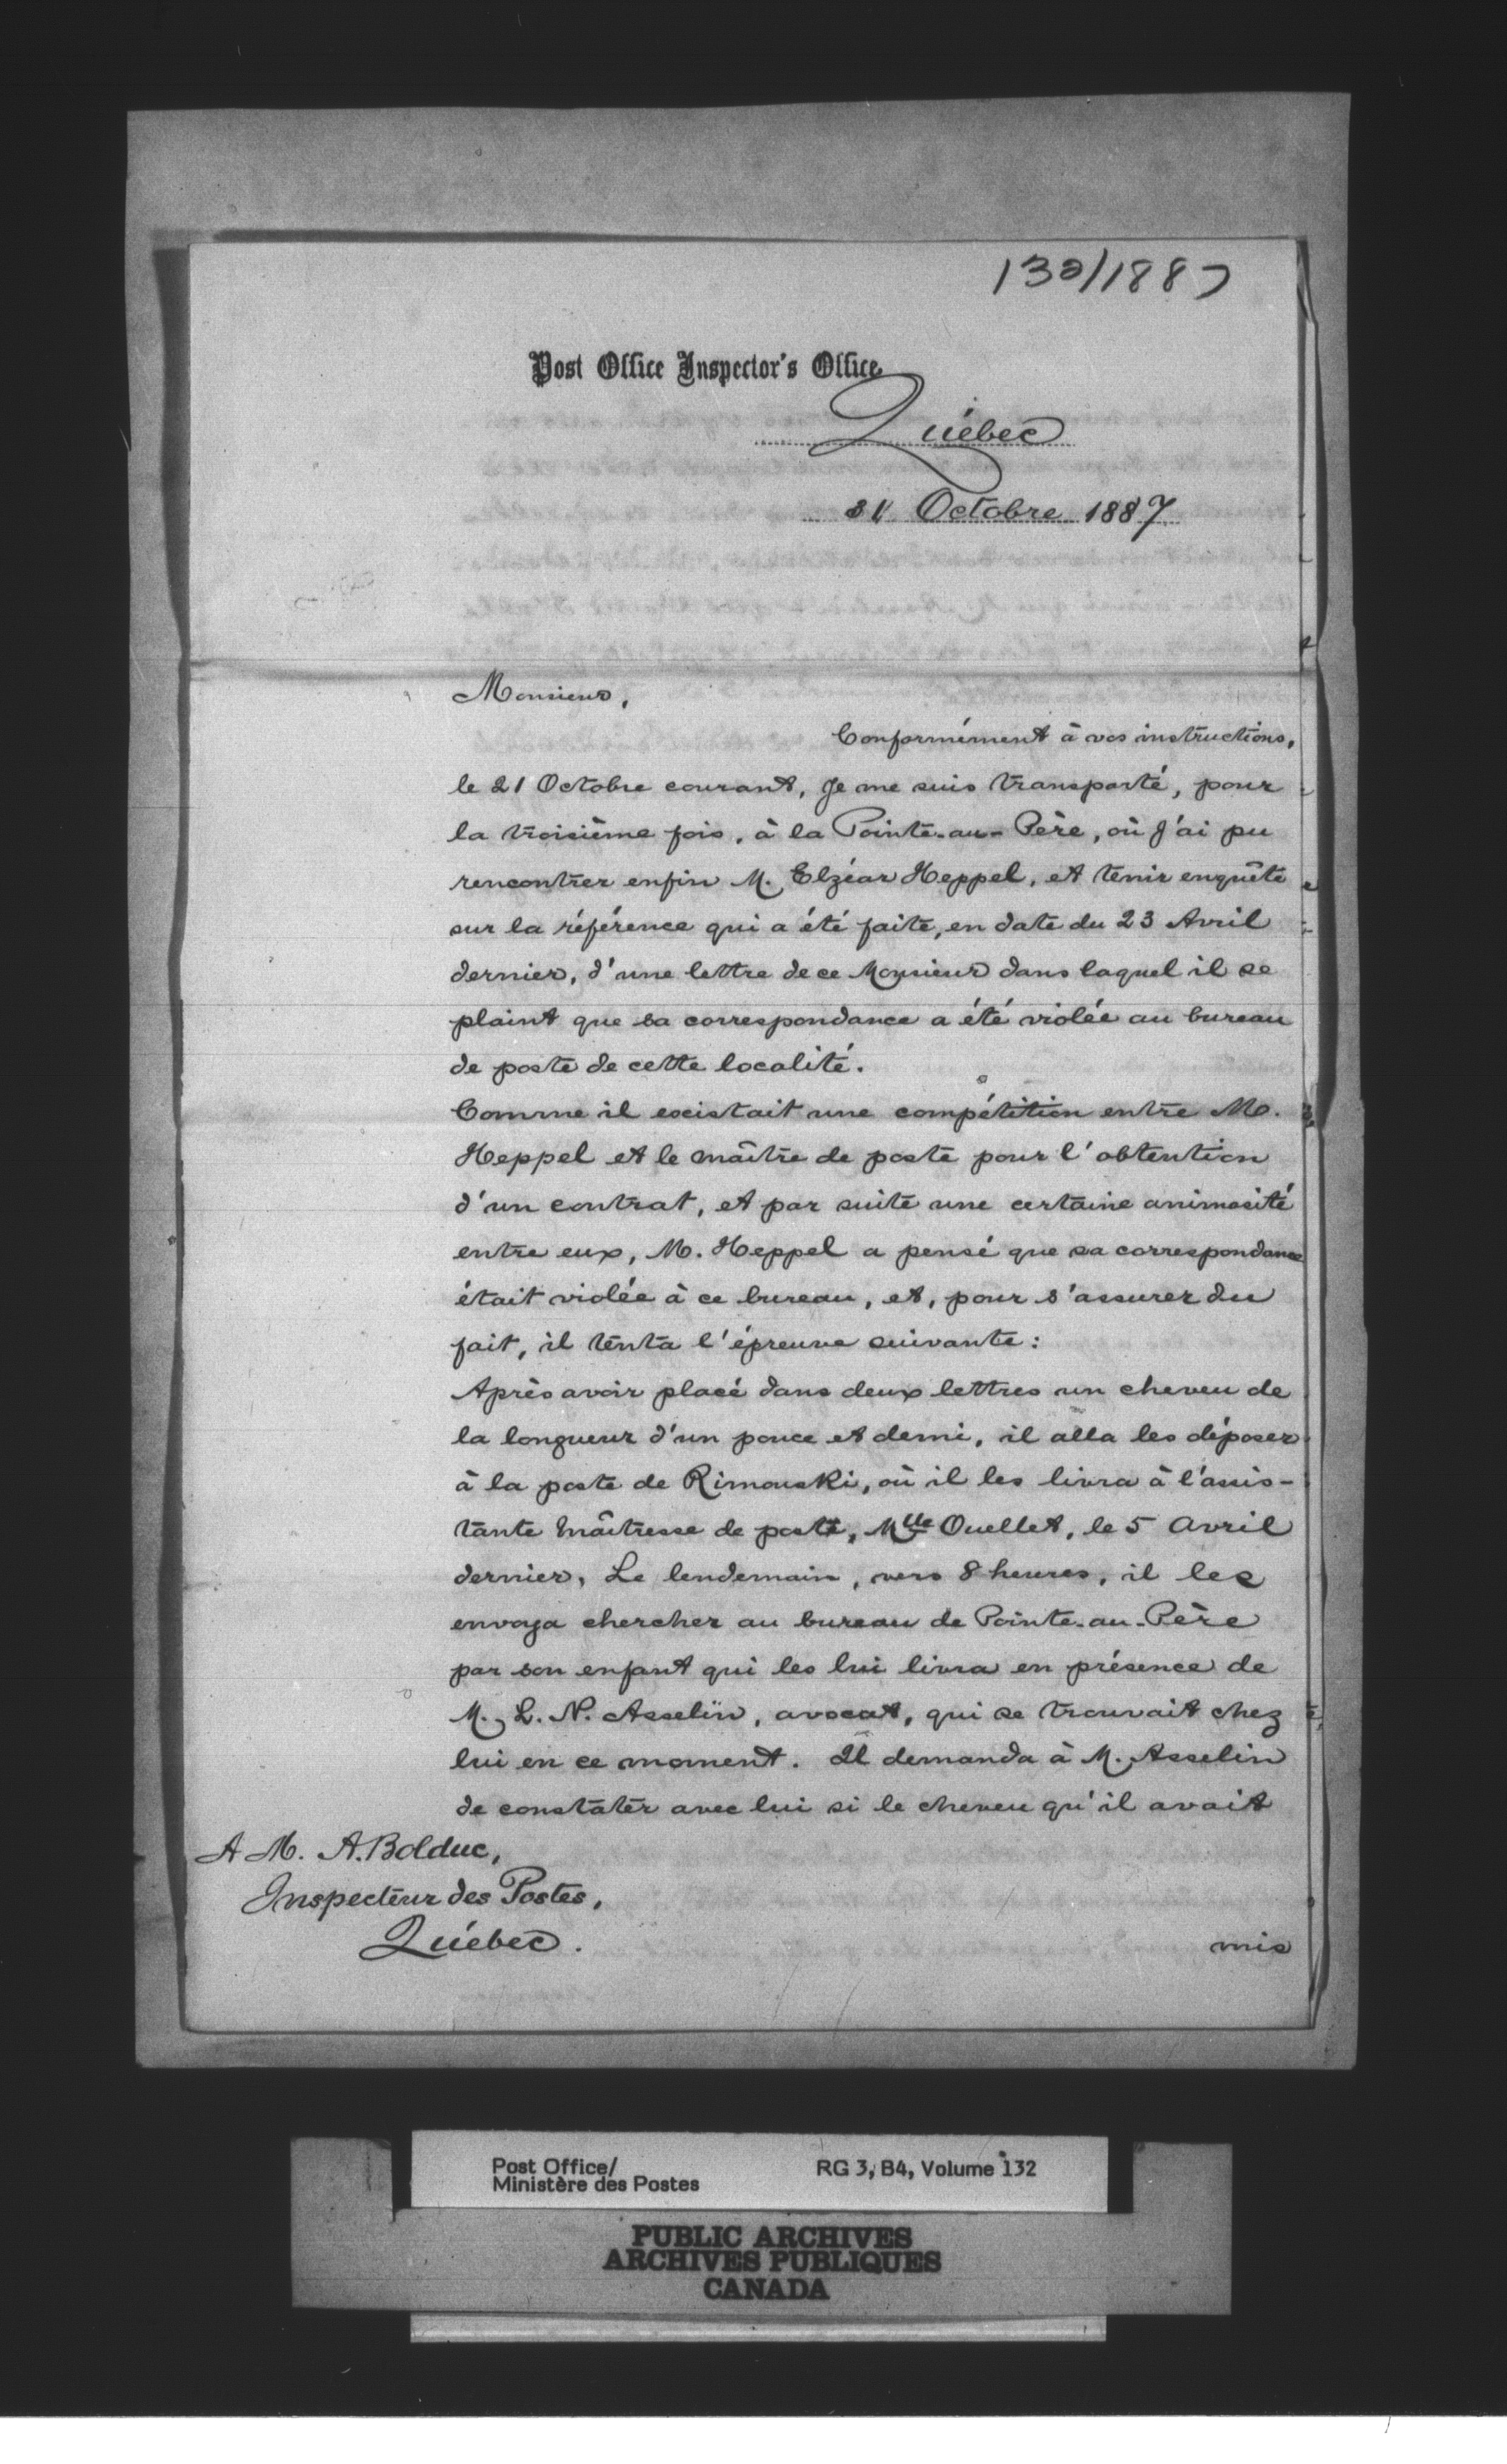 130/1887
Post Office Inspector's Office,
Québec
31 Octobre 1887
Monsieur,
Conformément à vos instructions,
le 21 Octobre courant, Je me suis transporté, pour
la troisième fois, à la Pointe-au-Père, où J'ai pu
rencontrer enfin M. Elzéar Heppel, et tenir enquête
sur la référence qui a été faite, en date du 23 Avril
dernier, d'une lettre de ce Monsieur dans laquel il se
plaint que sa correspondance a été violée au bureau
de poste de cette localité.
Comme il existait une compétition entre M.
Heppel et le maître de poste pour l'obtention
d'un contrat, et par suite une certaine animosité
entre eux, M. Heppel a pensé que sa correspondance
était violée à ce bureau, et, pour s'assurer du
fait, il tenta l'épreuve suivante:
Après avoir placé dans deux lettres un cheveu de
la longueur d'un pouce et demi, il alla les déposer
à la poste de Rimouski, où il les livra à l'assis-
tante maîtresse de poste, Mlle Ouellet, le 5 Avril
dernier. Le lendemain, vers 8 heures, il les
envoya chercher au bureau de Pointe-au-Père
par son enfant qui les lui livra en présence de
M. L. N. Asselin, avocat, qui se trouvait chez
lui en ce moment. Il demanda à M. Asselin
de constater avec lui si le cheveu qu'il avait
A M. A. Bolduc,
Inspecteur des Postes,
Québec.
mis
Post Office/
Ministère des Postes
RG 3, B4, Volume 132
PUBLIC ARCHIVES
ARCHIVES PUBLIQUES
CANADA